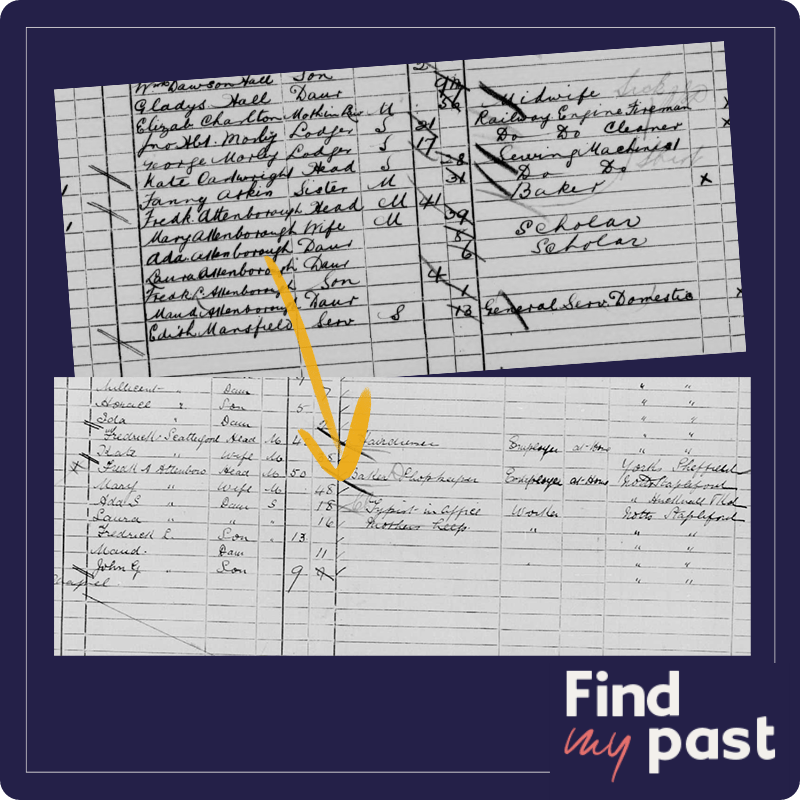 Wm Dawson Hall Son 2
Gladys Hall Daur
Elizab Charlton Mothinlaw M 56 Midwife
Jno Hbt. Morly Lodger S 21 Railway Engine Fireman
George Morly Lodger S 17 Do Do Cleaner
Kate Cartwright Head S 28 Sewing Machinist
Fanny Atkin Sister M 31 Do Do
Fredk Attenborough Head M 41 Baker x
Mary Attenborough Wife M 39
Ada Attenborough Daur 8 Scholar
Laura Attenborough Daur 6 Scholar
Fredk C Attenborough Son 4
Maud Attenborough Daur 1
Edith Mansfield Serv S 13 General Serv. Domestic x
Millicent " Daur " "
Horace " Son 5 " "
Ida " Daur " "
Fredrick Head M Hairdresser Employer at Home " "
Kate " Wife M York Sheffield
Fredk A Attenboro Head M 50 Baker & Shopkeeper Employer at Home Notts Stapleford
Mary " Wife M 48 " Hucknall
Ada S " Daur S 18 Typist in office Worker Notts Stapleford
Laura " " " 16 Mothers help " " "
Fredrick C Son 13 " "
Maud Daur 11 " "
John G " Son 9 " "
Chapel
Find
my past